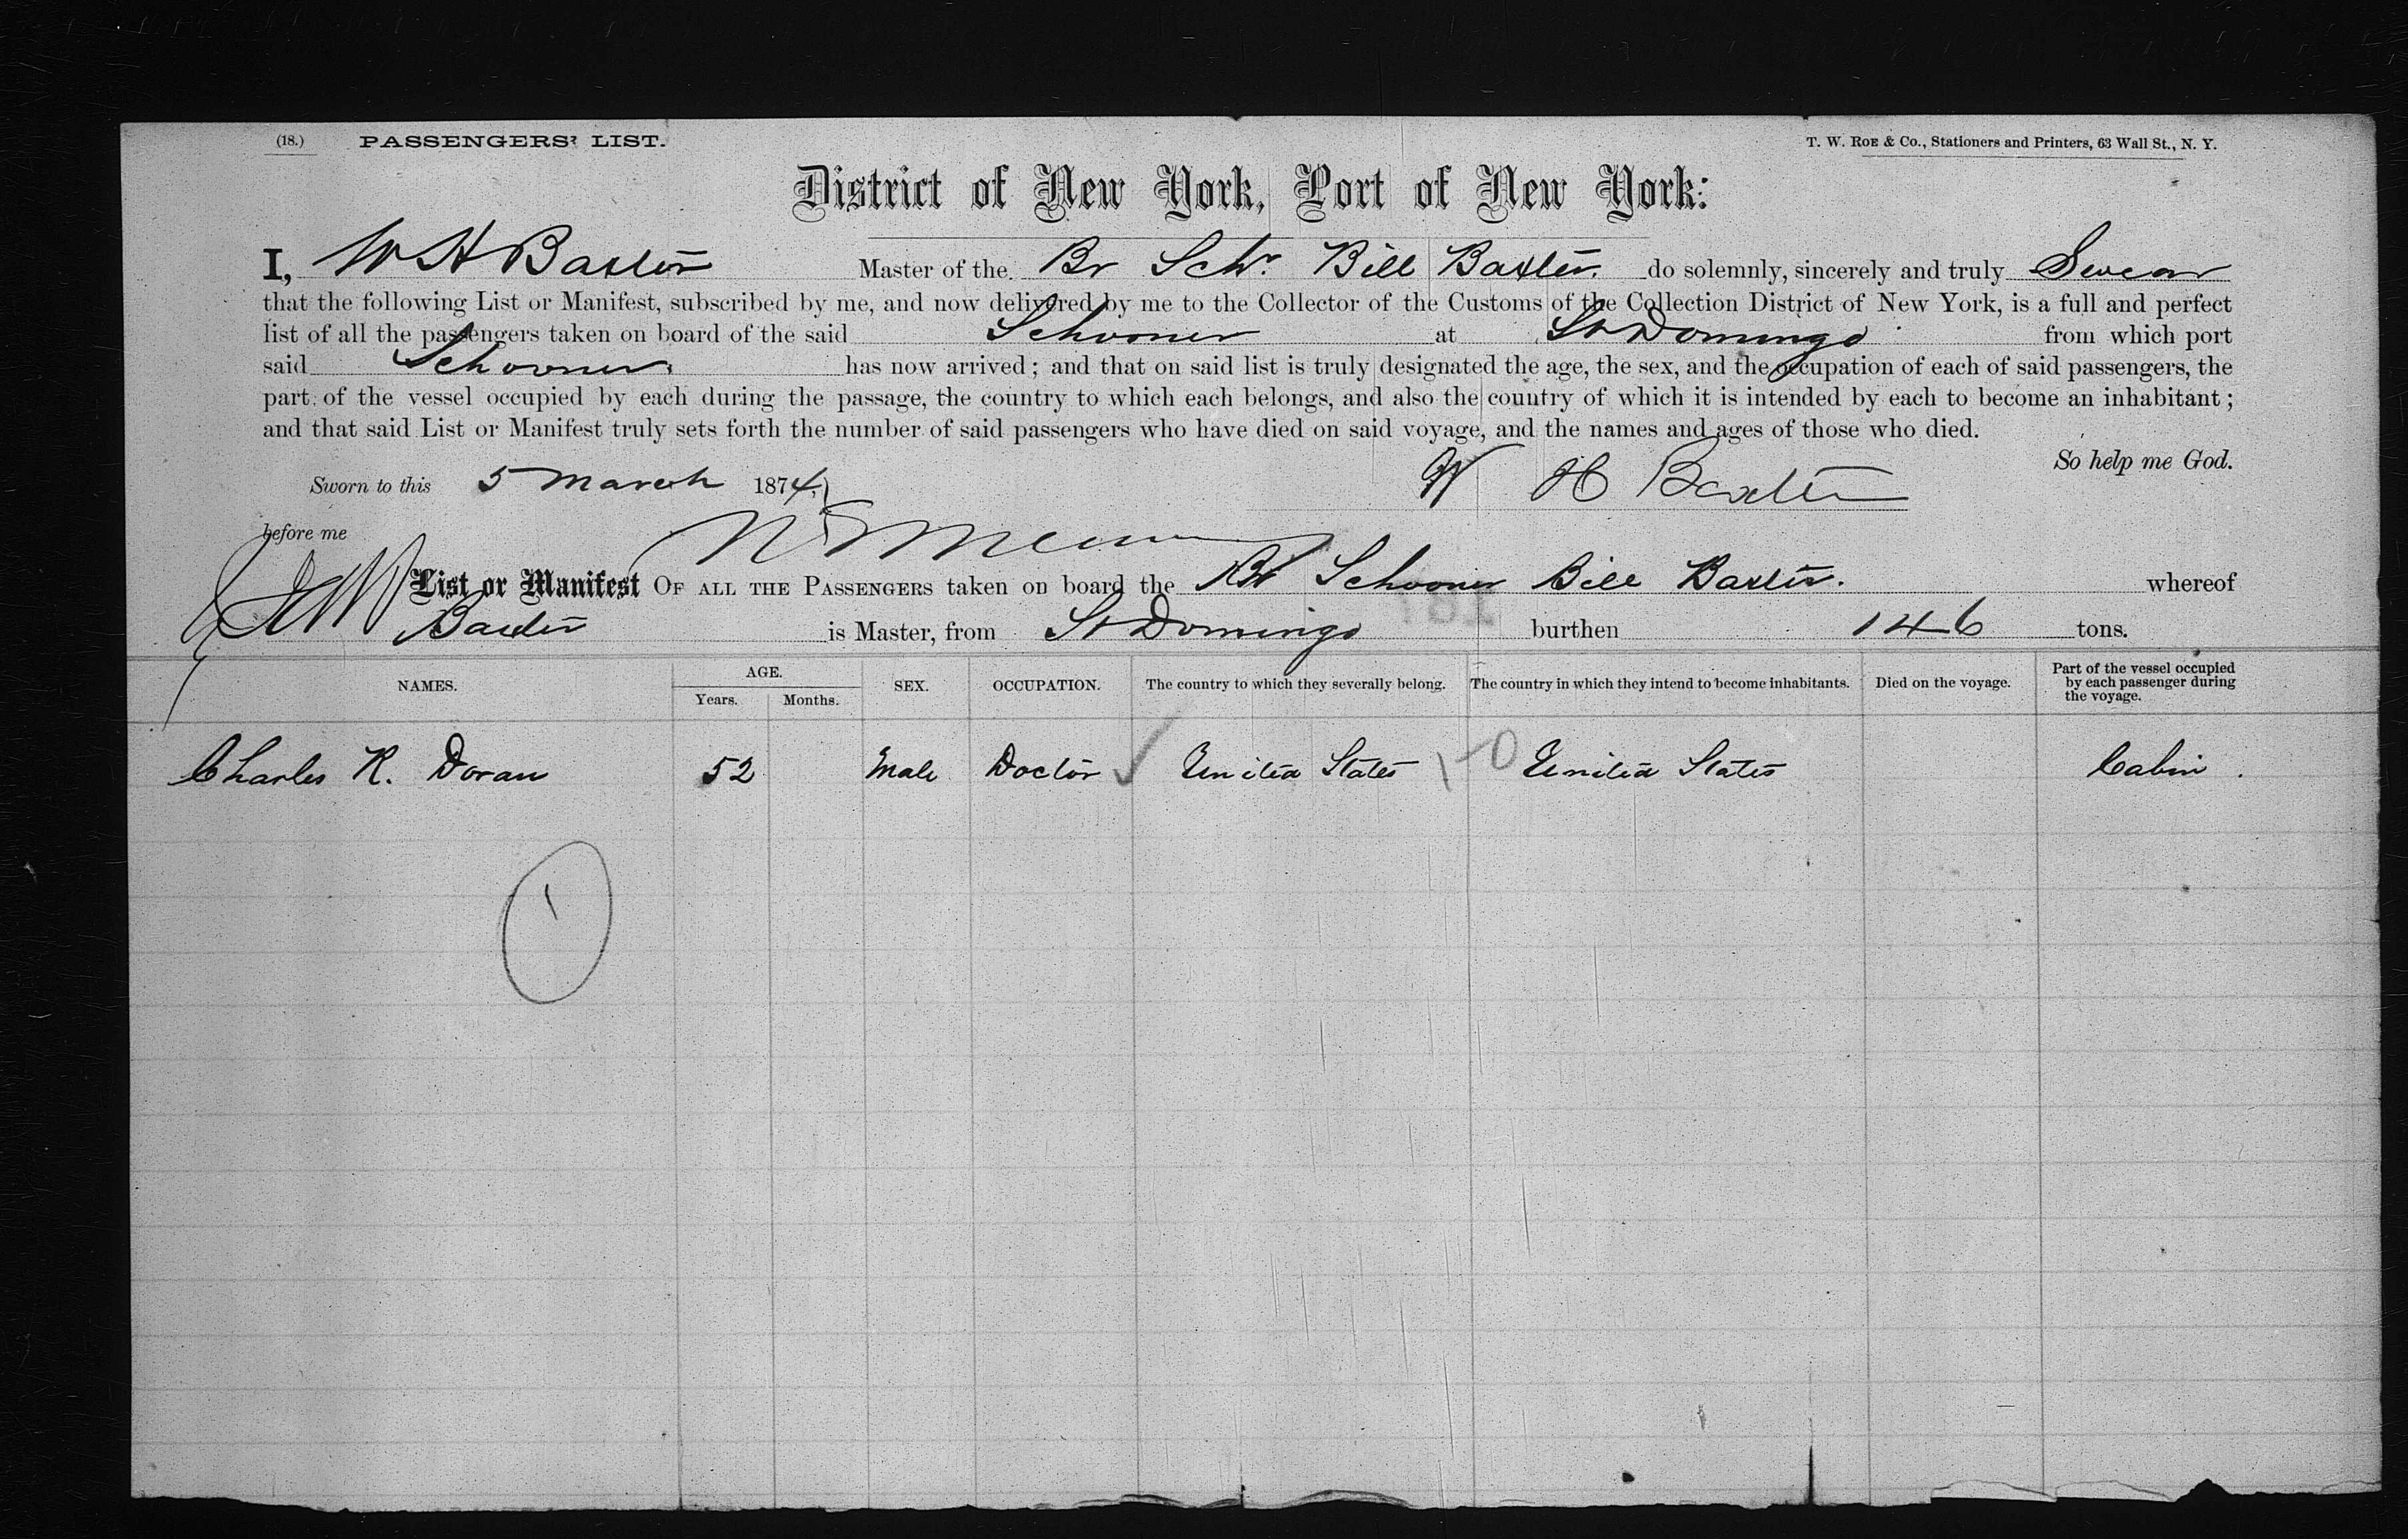 (18.) PASSENGERS' LIST. T. W. ROE & Co., Stationers and Printers, 63 Wall St., N. Y.
District of New York, Port of New York:
I, W H Baxter Master of the Br Schr. Bill Baxter. do solemnly, sincerely and truly Swear
that the following List or Manifest, subscribed by me, and now delivered by me to the Collector of the Customs of the Collection District of New York, is a full and perfect
list of all the passengers taken on board of the said Schooner at St Domingo from which port
said Schooner has now arrived; and that on said list is truly designated the age, the sex, and the occupation of each of said passengers, the
part of the vessel occupied by each during the passage, the country to which each belongs, and also the country of which it is intended by each to become an inhabitant;
and that said List or Manifest truly sets forth the number of said passengers who have died on said voyage, and the names and ages of those who died.
So help me God.
Sworn to this 5 March 1874, W H Baxter
before me
List or Manifest OF ALL THE PASSENGERS taken on board the Br Schooner Bill Baxter. whereof
Baxter is Master, from St Domingo burthen 146 tons.
NAMES. AGE. Years. Months. SEX. OCCUPATION. The country to which they severally belong. The country in which they intend to become inhabitants. Died on the voyage. Part of the vessel occupied by each passenger during the voyage.
Charles R. Doran 52 Male Doctor United States 1-0 United States Cabin.
1